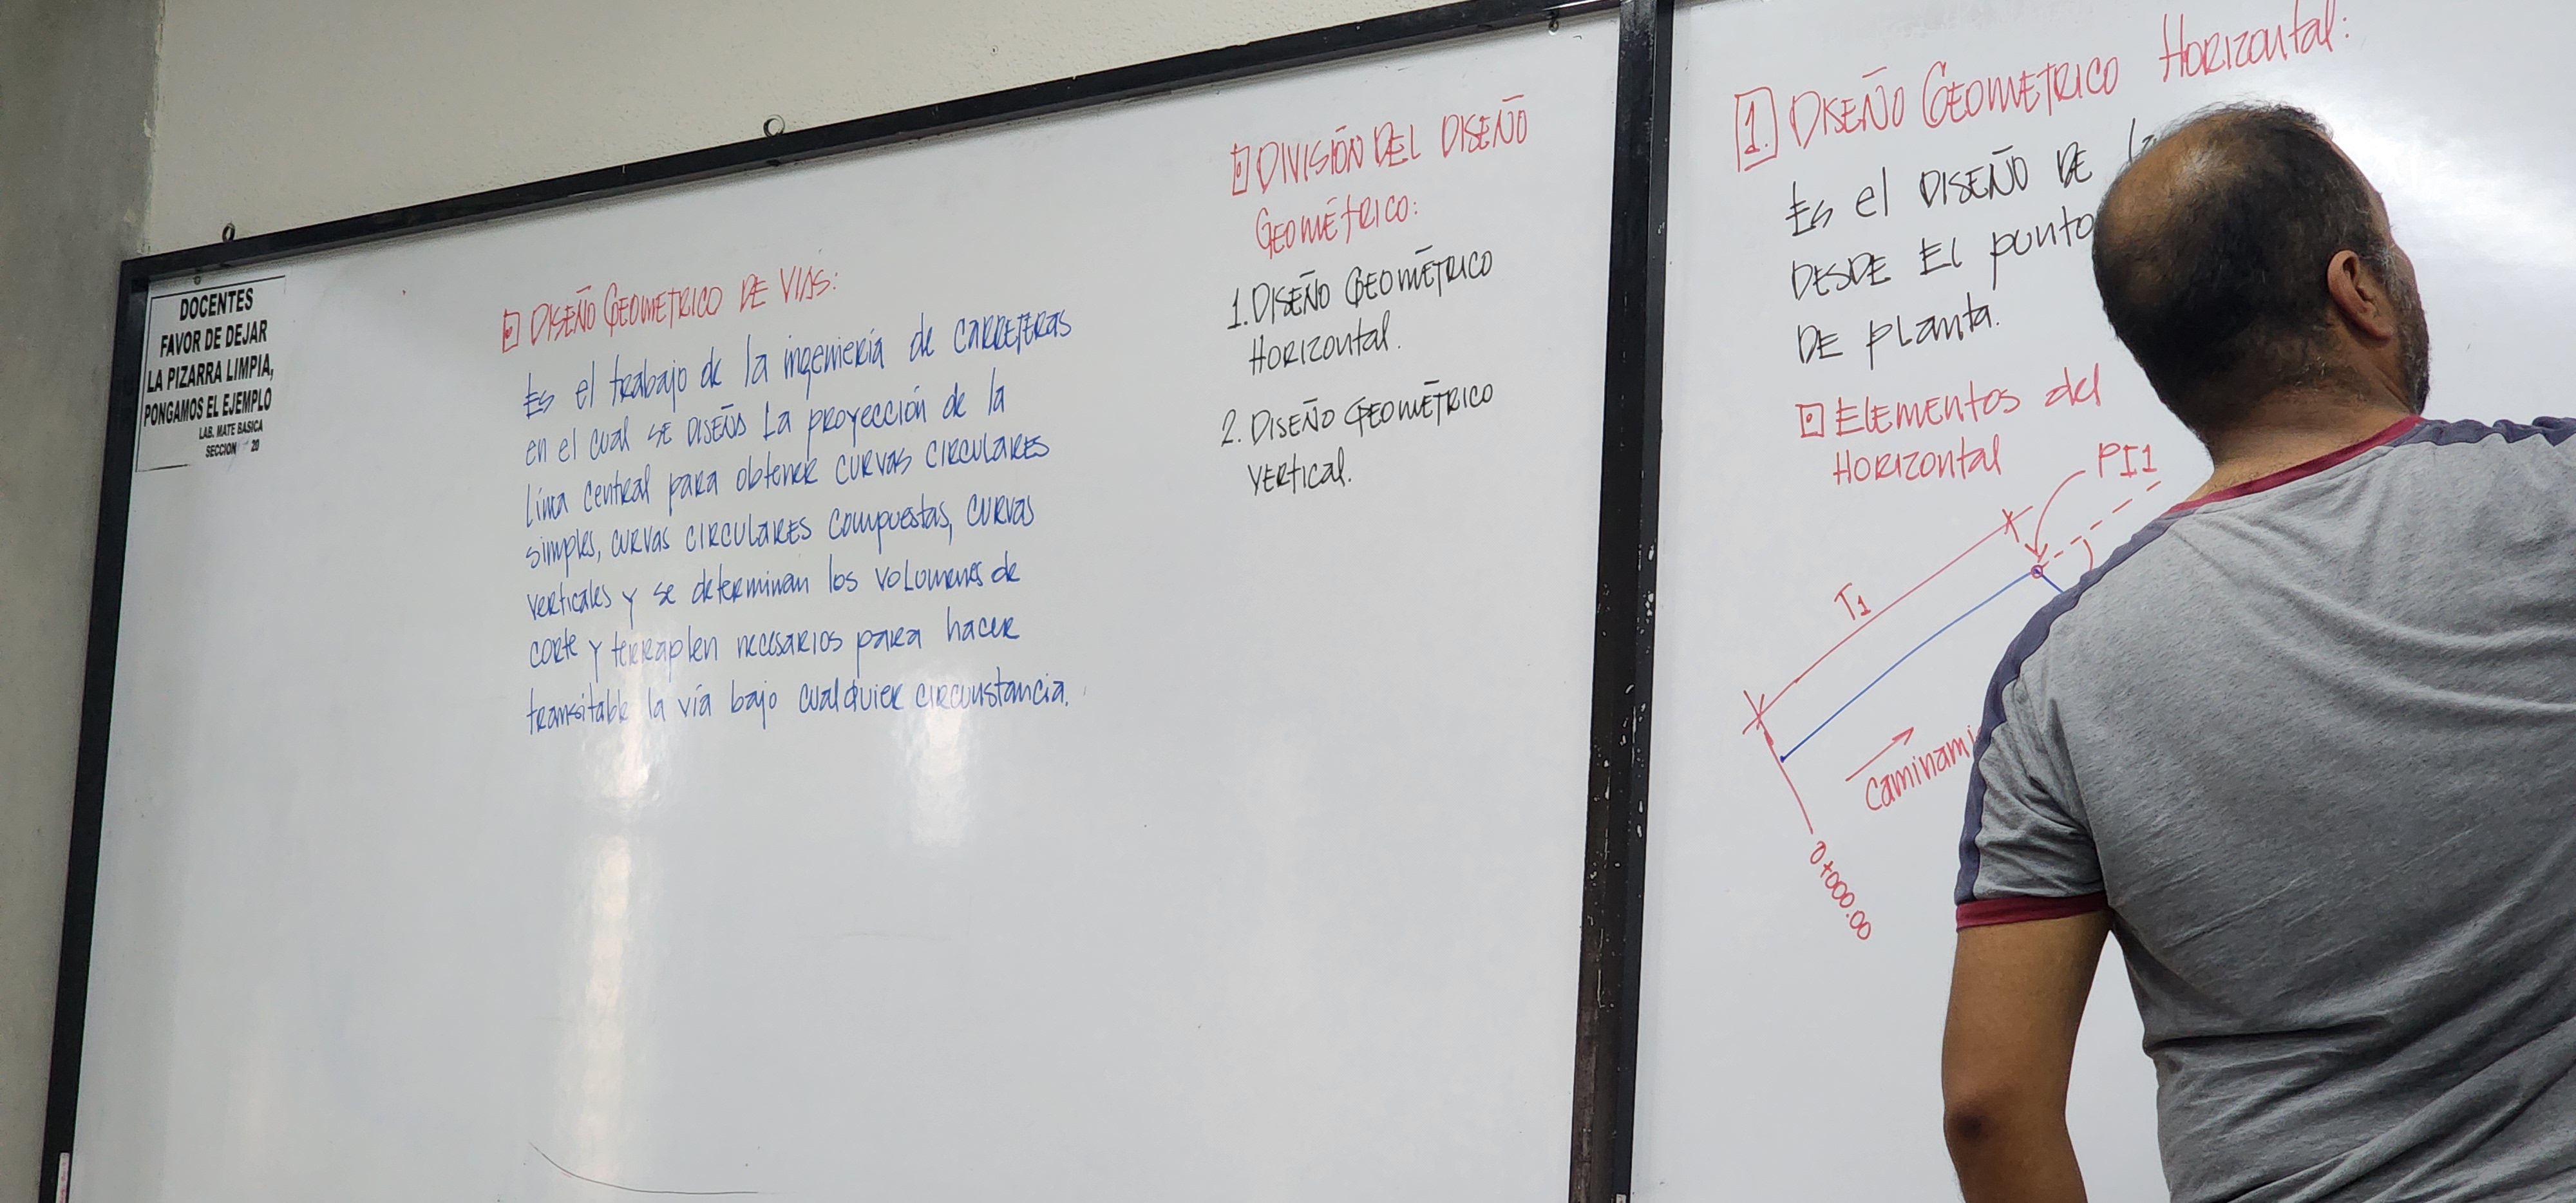 DOCENTES
FAVOR DE DEJAR
LA PIZARRA LIMPIA,
PONGAMOS EL EJEMPLO
LAB. MATE BASICA
SECCION 20
DISEÑO GEOMETRICO DE VIAS:
Es el trabajo de la ingeniería de CARRETERAS
en el cual SE DISEÑA LA proyección de la
línea central para obtener curvas CIRCULARES
simples, curvas CIRCULARES compuestas, curvas
verticales y se determinan los volumenes de
corte y terraplen necesarios para hacer
transitable la vía bajo cualquier circunstancia.
DIVISIÓN DEL DISEÑO
GEOMÉTRICO:
1. DISEÑO GEOMÉTRICO
HORIZONTAL.
2. DISEÑO GEOMÉTRICO
VERTICAL.
1. DISEÑO GEOMETRICO HORIZONTAL:
Es el DISEÑO DE
DESDE El punto
DE planta.
ELEMENTOS del
HORIZONTAL
PI1
T1
Caminami
0+000.00